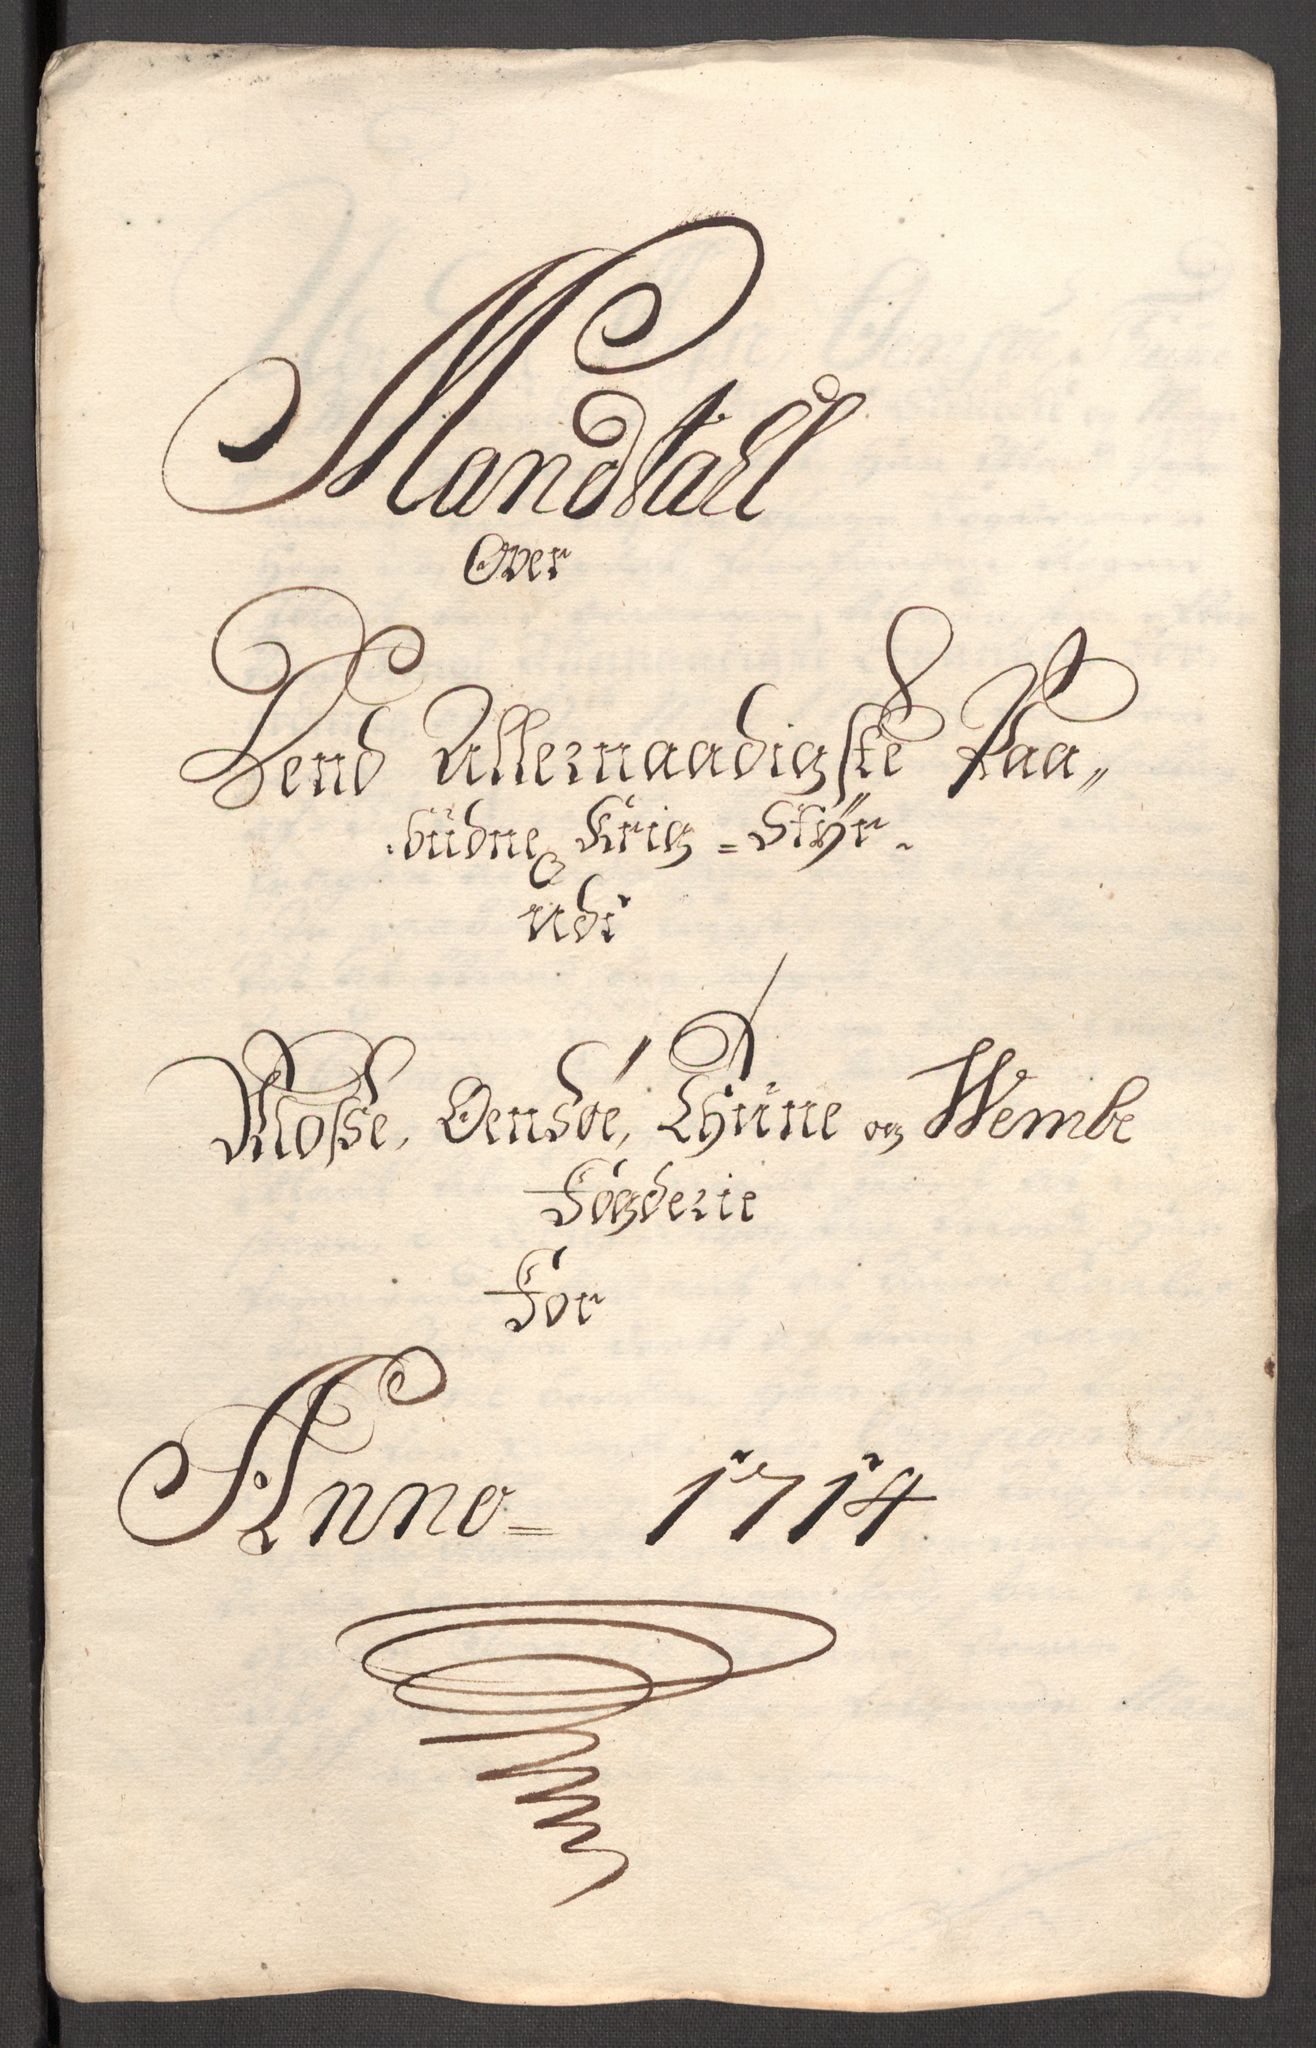 Mandtall
Over
Dend Allernaadigste Paa„
büdne Krig = Stÿr
udi
Mosse, Oensøe, Thüne og Wembe
Fögderie
For
Anno = 1714